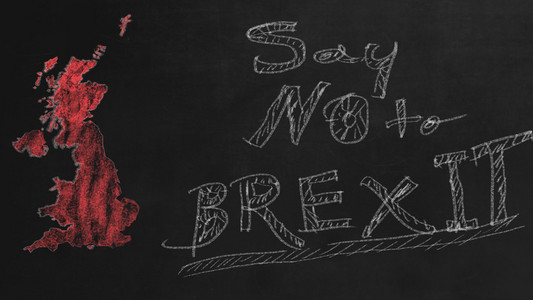 Say
NO to
BREXIT